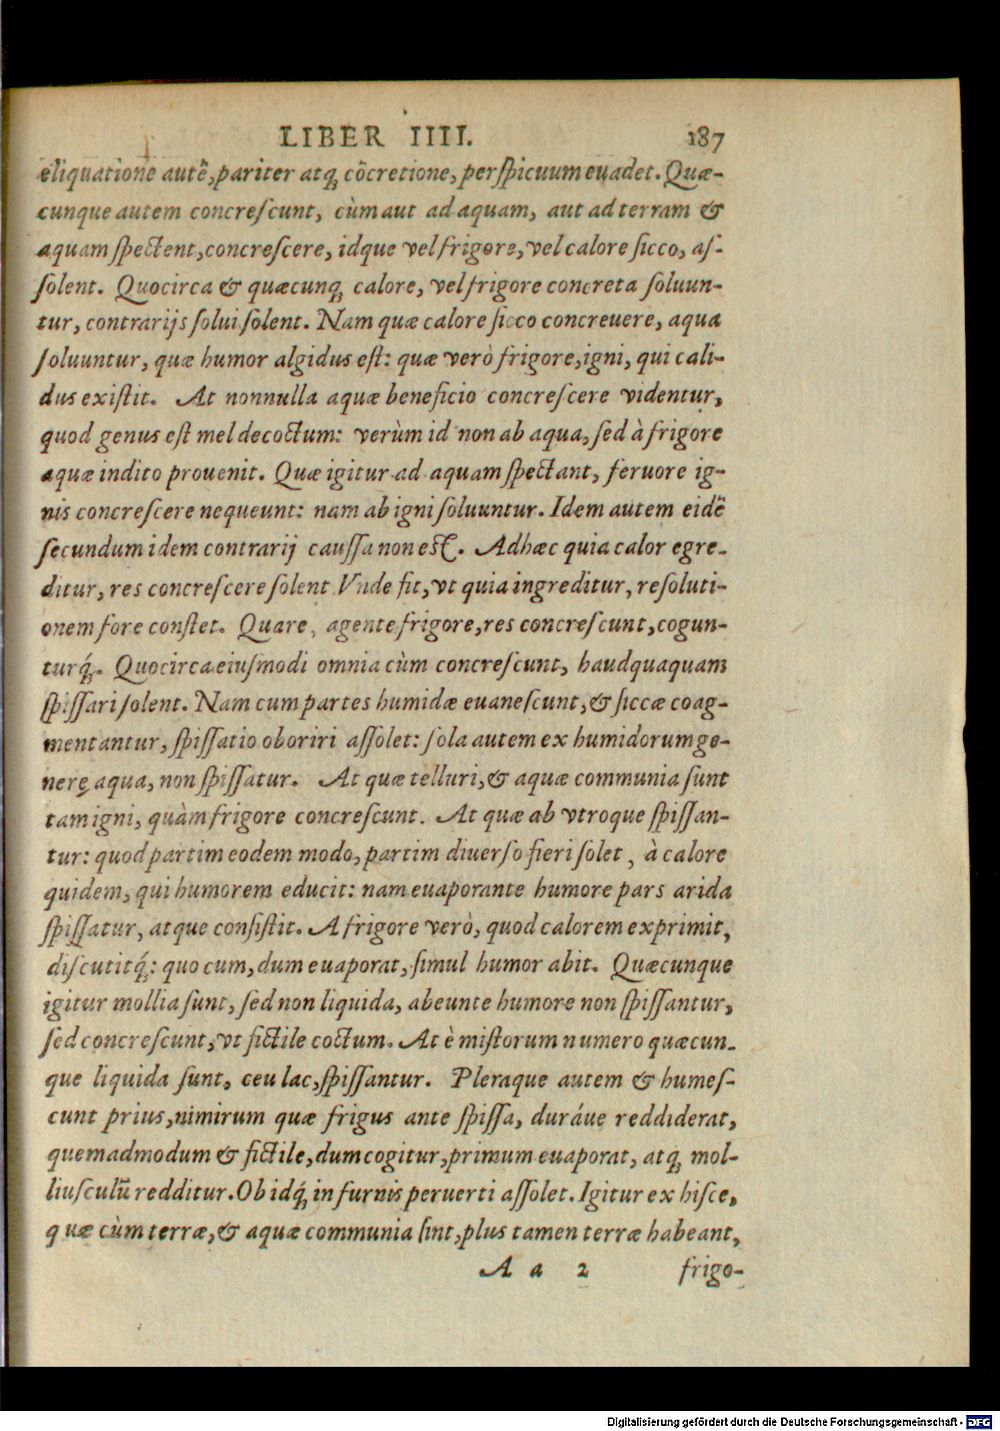 LIBER IIII. 187
eliquatione autẽ, pariter atq; cõcretione, perspicuum euadet. Quæ-
cunque autem concrescunt, cùm aut ad aquam, aut ad terram &
aquam spectent, concrescere, idque vel frigore, vel calore sicco, as-
solent. Quocirca & quæcunq; calore, vel frigore concreta soluun-
tur, contrarijs solui solent. Nam quæ calore sicco concreuere, aqua
soluuntur, quæ humor algidus est: quæ verò frigore, igni, qui cali-
dus existit. At nonnulla aquæ beneficio concrescere videntur,
quod genus est mel decoctum: verùm id non ab aqua, sed à frigore
aquæ indito prouenit. Quæ igitur ad aquam spectant, feruore ig-
nis concrescere nequeunt: nam ab igni soluuntur. Idem autem eidẽ
secundum idem contrarij caussa non est. Adhæc quia calor egre-
ditur, res concrescere solent Vnde fit, vt quia ingreditur, resoluti-
onem fore constet. Quare, agente frigore, res concrescunt, cogun-
turq́;. Quocirca eiusmodi omnia cùm concrescunt, haudquaquam
spissari solent. Nam cum partes humidæ euanescunt, & siccæ coag-
mentantur, spissatio oboriri assolet: sola autem ex humidorum ge-
nerę aqua, non spissatur. At quæ telluri, & aquæ communia sunt
tam igni, quàm frigore concrescunt. At quæ ab vtroque spissan-
tur: quod partim eodem modo, partim diuerso fieri solet, à calore
quidem, qui humorem educit: nam euaporante humore pars arida
spissatur, atque consistit. A frigore verò, quod calorem exprimit,
discutitq́;: quo cum, dum euaporat, simul humor abit. Quæcunque
igitur mollia sunt, sed non liquida, abeunte humore non spissantur,
sed concrescunt, vt fictile coctum. At è mistorum numero quæcun-
que liquida sunt, ceu lac, spissantur. Pleraque autem & humes-
cunt prius, nimirum quæ frigus ante spissa, duráue reddiderat,
quemadmodum & fictile, dum cogitur, primum euaporat, atq; mol-
liusculũ redditur. Ob idq́; in furnis peruerti assolet. Igitur ex hisce,
quæ cùm terræ, & aquæ communia sint, plus tamen terræ habeant,
A a 2 frigo-
Digitalisierung gefördert durch die Deutsche Forschungsgemeinschaft - DFG